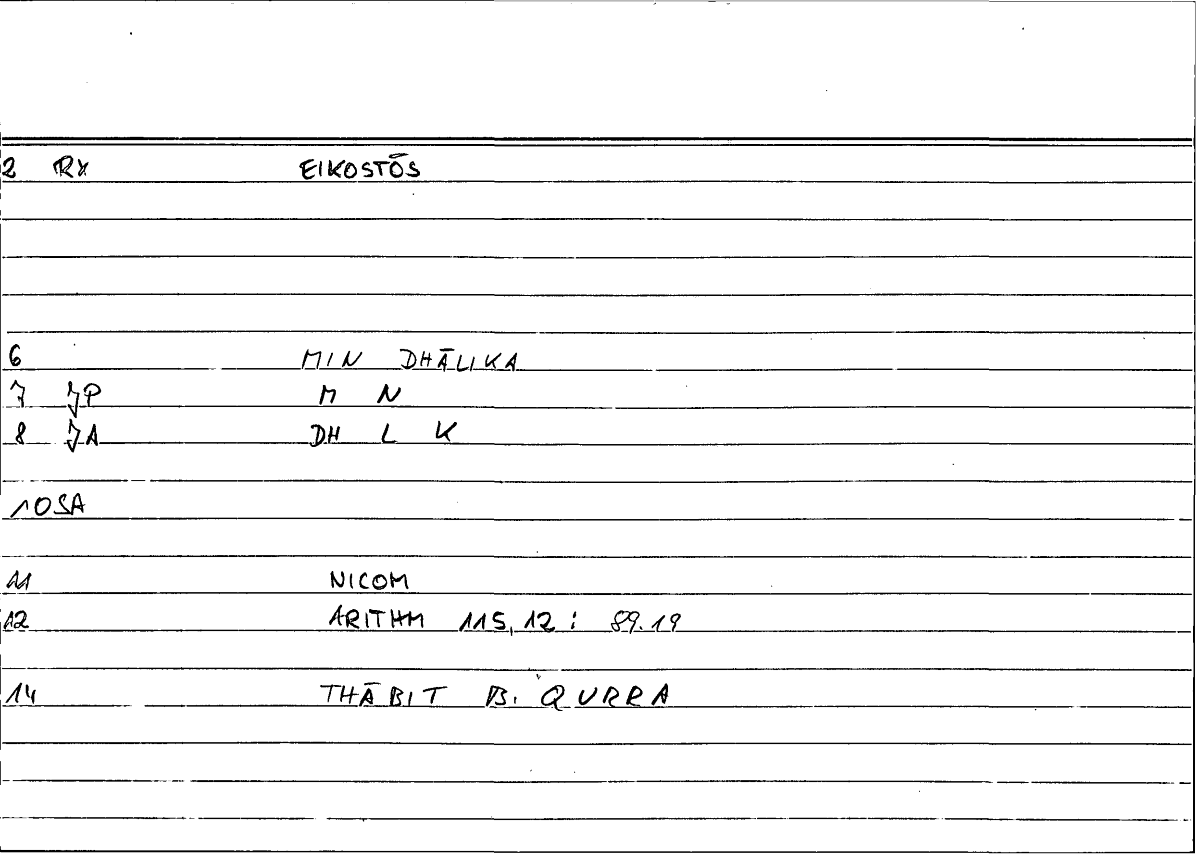 2 RX EIKOSTŌS
6 MIN DHĀLIKA
7 JP M N
8 JA DH L K
10SA
11 NICOM
12 ARITHM 115,12 : 89.19
14 THĀBIT B. QURRA